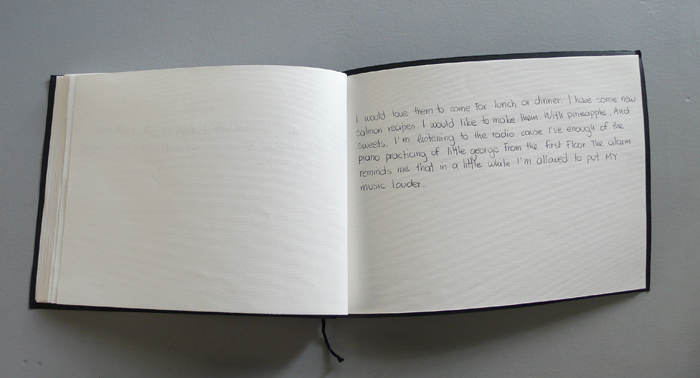 I would love them to come for lunch or dinner. I have some new
salmon recipes I would like to make them. With pineapple. And
sweets. I'm listening to the radio cause I've enough of the
piano practicing of little george from the first floor. The alarm
reminds me that in a little while I'm allowed to put MY
music louder.